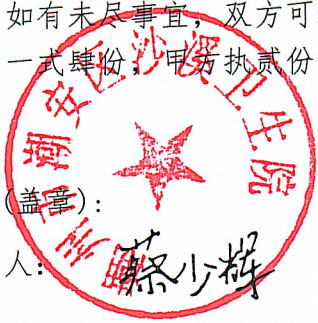 如有未尽事宜，双方可
一式肆份，甲方执贰份
潮州市潮安区沙溪卫生院
(盖章)：
人：蔡少辉